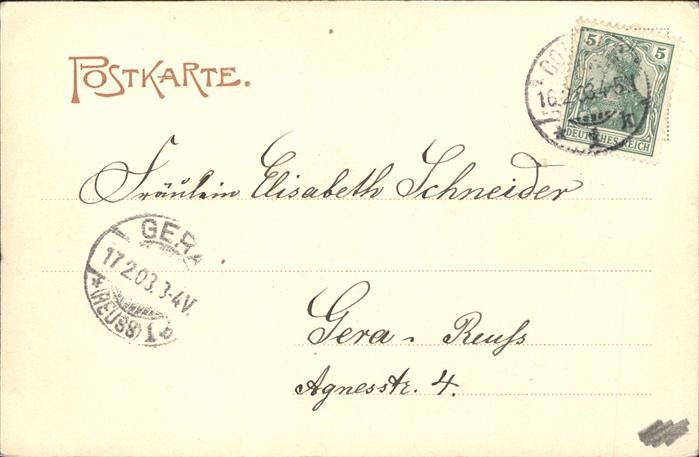 POSTKARTE.
5 5
16.2.03.4-5N
* 1 k
DEUTSCHES REICH
Fräulein Elisabeth Schneider
GERA
17.2.03.3-4V.
* (REUSS) 1 b
Gera - Reuß
Agnesstr. 4.